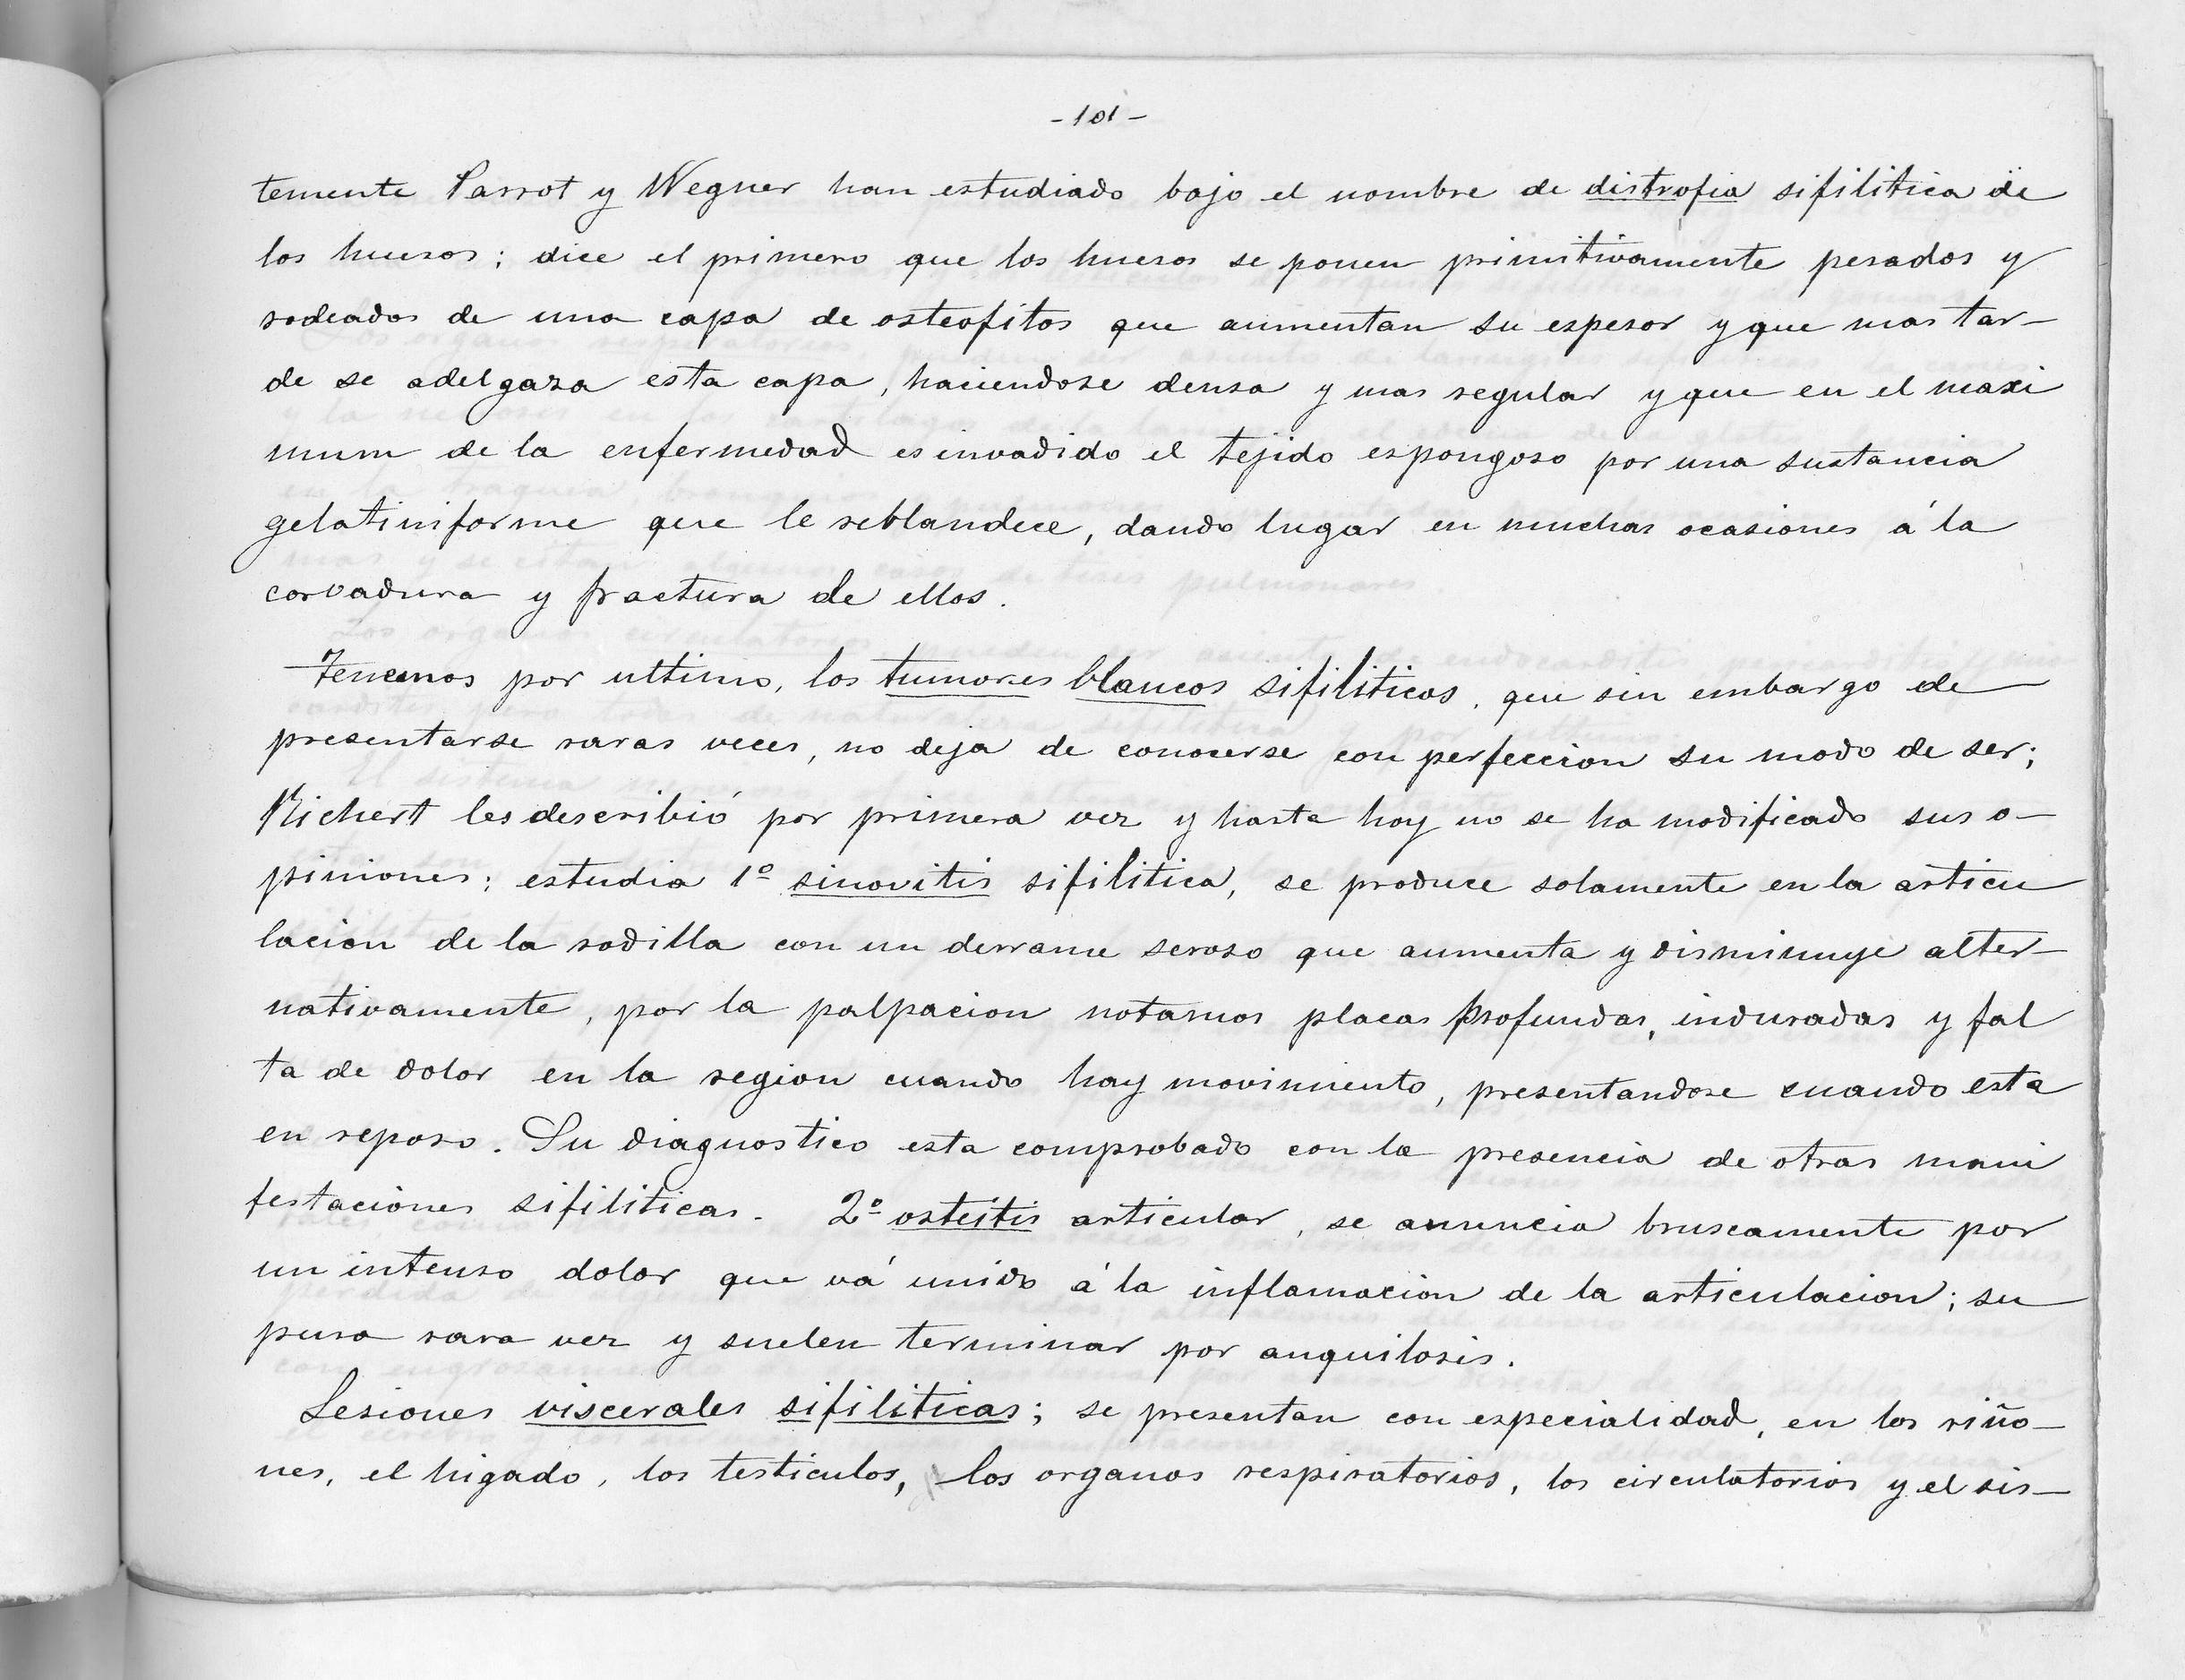 - 101 -
temente Parrot y Wegner han estudiado bajo el nombre de distrofia sifilitica de
los huesos; dice el primero que los huesos se ponen primitivamente pesados y
rodeados de una capa de osteofitos que aumentan su espesor y que mas tar-
de se adelgaza esta capa, haciendose densa y mas regular y que en el maxi
mum de la enfermedad es invadido el tejido espongoso por una sustancia
gelatiniforme que le reblandece, dando lugar en muchas ocasiones á la
corvadura y fractura de ellos.
Tenemos por ultimo, los tumores blancos sifiliticos, que sin embargo de
presentarse raras veces, no deja de conocerse con perfeccion su modo de ser;
Richert les describió por primera vez y hasta hoy no se ha modificado sus o-
piniones: estudia 1º sinovitis sifilitica, se produce solamente en la articu
lacion de la rodilla con un derrame seroso que aumenta y disminuye alter-
nativamente, por la palpacion notamos placas profundas, induradas y fal
ta de dolor en la region cuando hay movimiento, presentandose cuando esta
en reposo. Su diagnostico esta comprobado con la presencia de otras mani
festaciones sifiliticas. 2º osteitis articular, se anuncia bruscamente por
un intenso dolor que vá unido á la inflamacion de la articulacion; su
pura rara vez y suelen terminar por anquilosis.
Lesiones viscerales sifiliticas; se presentan con especialidad, en los riño-
nes, el higado, los testiculos, los organos respiratorios, los circulatorios y el sis-